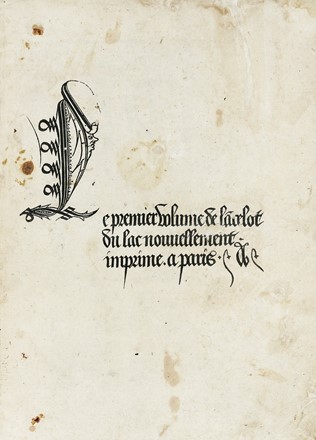 Le premier volume de lācelot
du lac nouuellement
imprime. a paris.